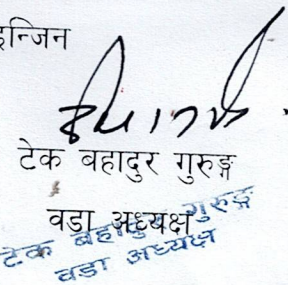 इन्जिन
टेक बहादुर गुरुङ्ग
वडा अध्यक्ष
टेक बहादुर गुरुङ्ग
वडा अध्यक्ष